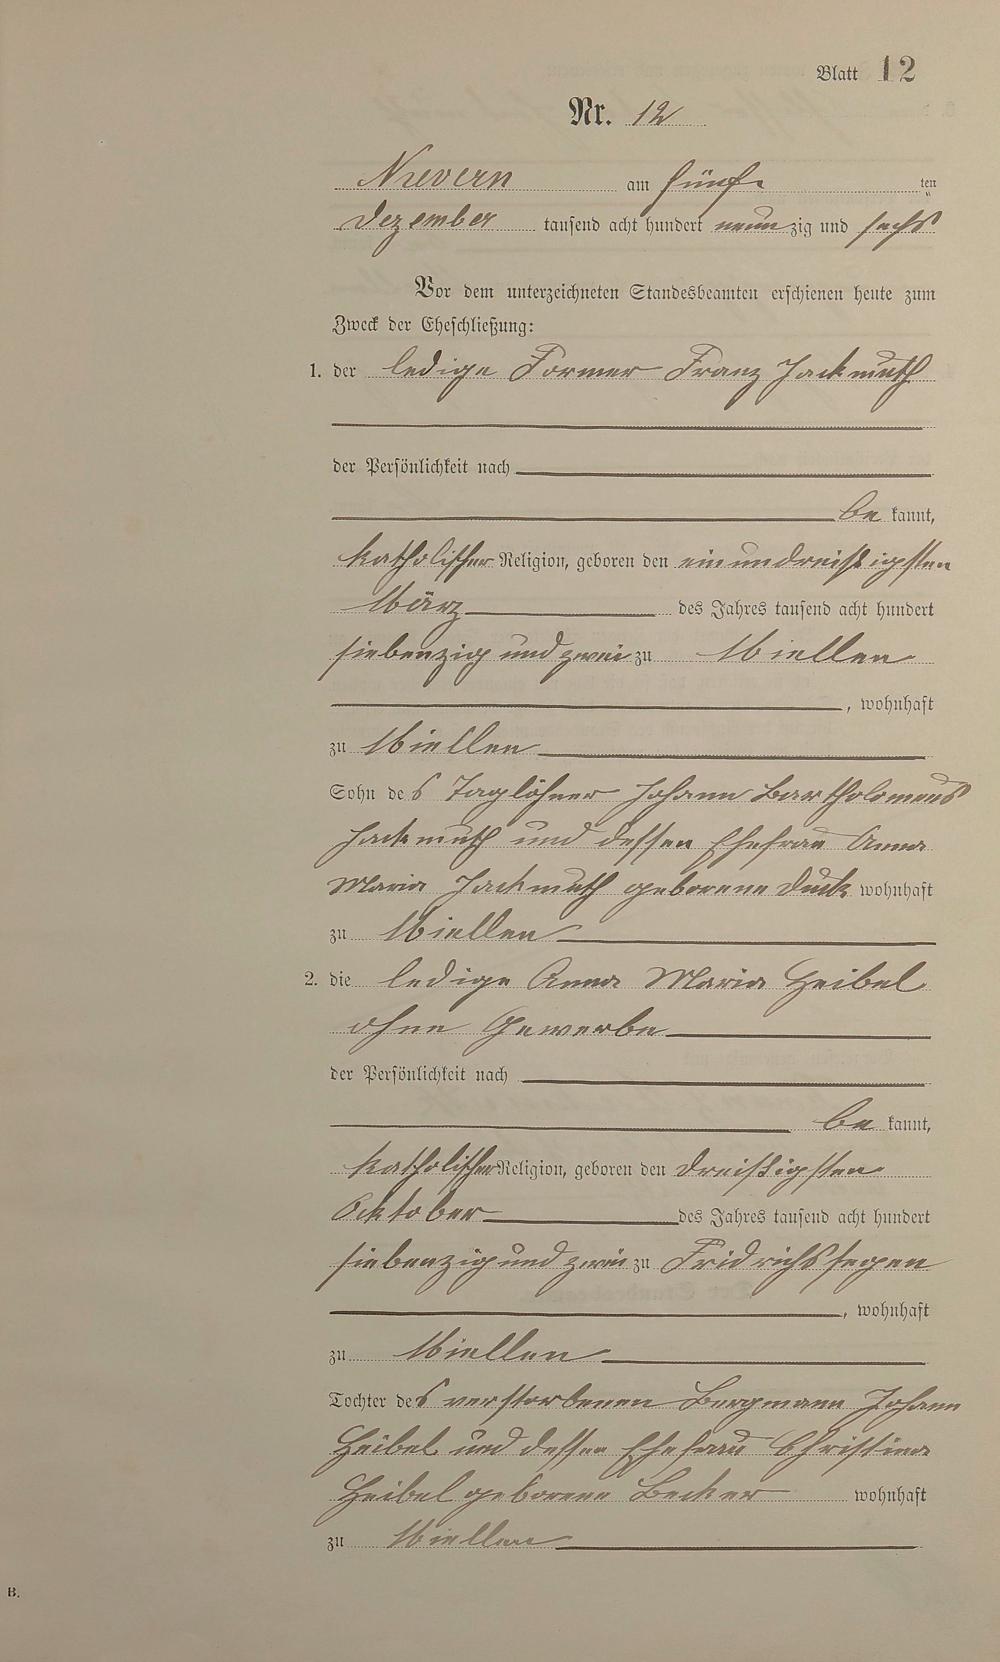 Blatt 12
Nr. 12
Nievern am fünf ten
Dezember tausend acht hundert neunzig und sechs
Vor dem unterzeichneten Standesbeamten erschienen heute zum
Zweck der Eheschließung:
1. der ledige Former Franz Jackmuth
der Persönlichkeit nach
bekannt,
katholischer Religion, geboren den einundreißigsten
März des Jahres tausend acht hundert
siebenzig und zwei zu Miellen
, wohnhaft
zu Miellen
Sohn des Taglöhner Johann Bartholomeus
Jackmuth und dessen Ehefrau Anna
Maria Jackmuth geborene Duck wohnhaft
zu Miellen
2. die ledige Anna Maria Heibel
ohne Gewerbe
der Persönlichkeit nach
bekannt,
katholischer Religion, geboren den dreißigsten
Ocktober des Jahres tausend acht hundert
siebenzig und zwei zu Fridrichssegen
, wohnhaft
zu Miellen
Tochter des verstorbenen Bergmann Johann
Heibel und dessen Ehefrau Christina
Heibel geborene Becker wohnhaft
zu Miellen
B.